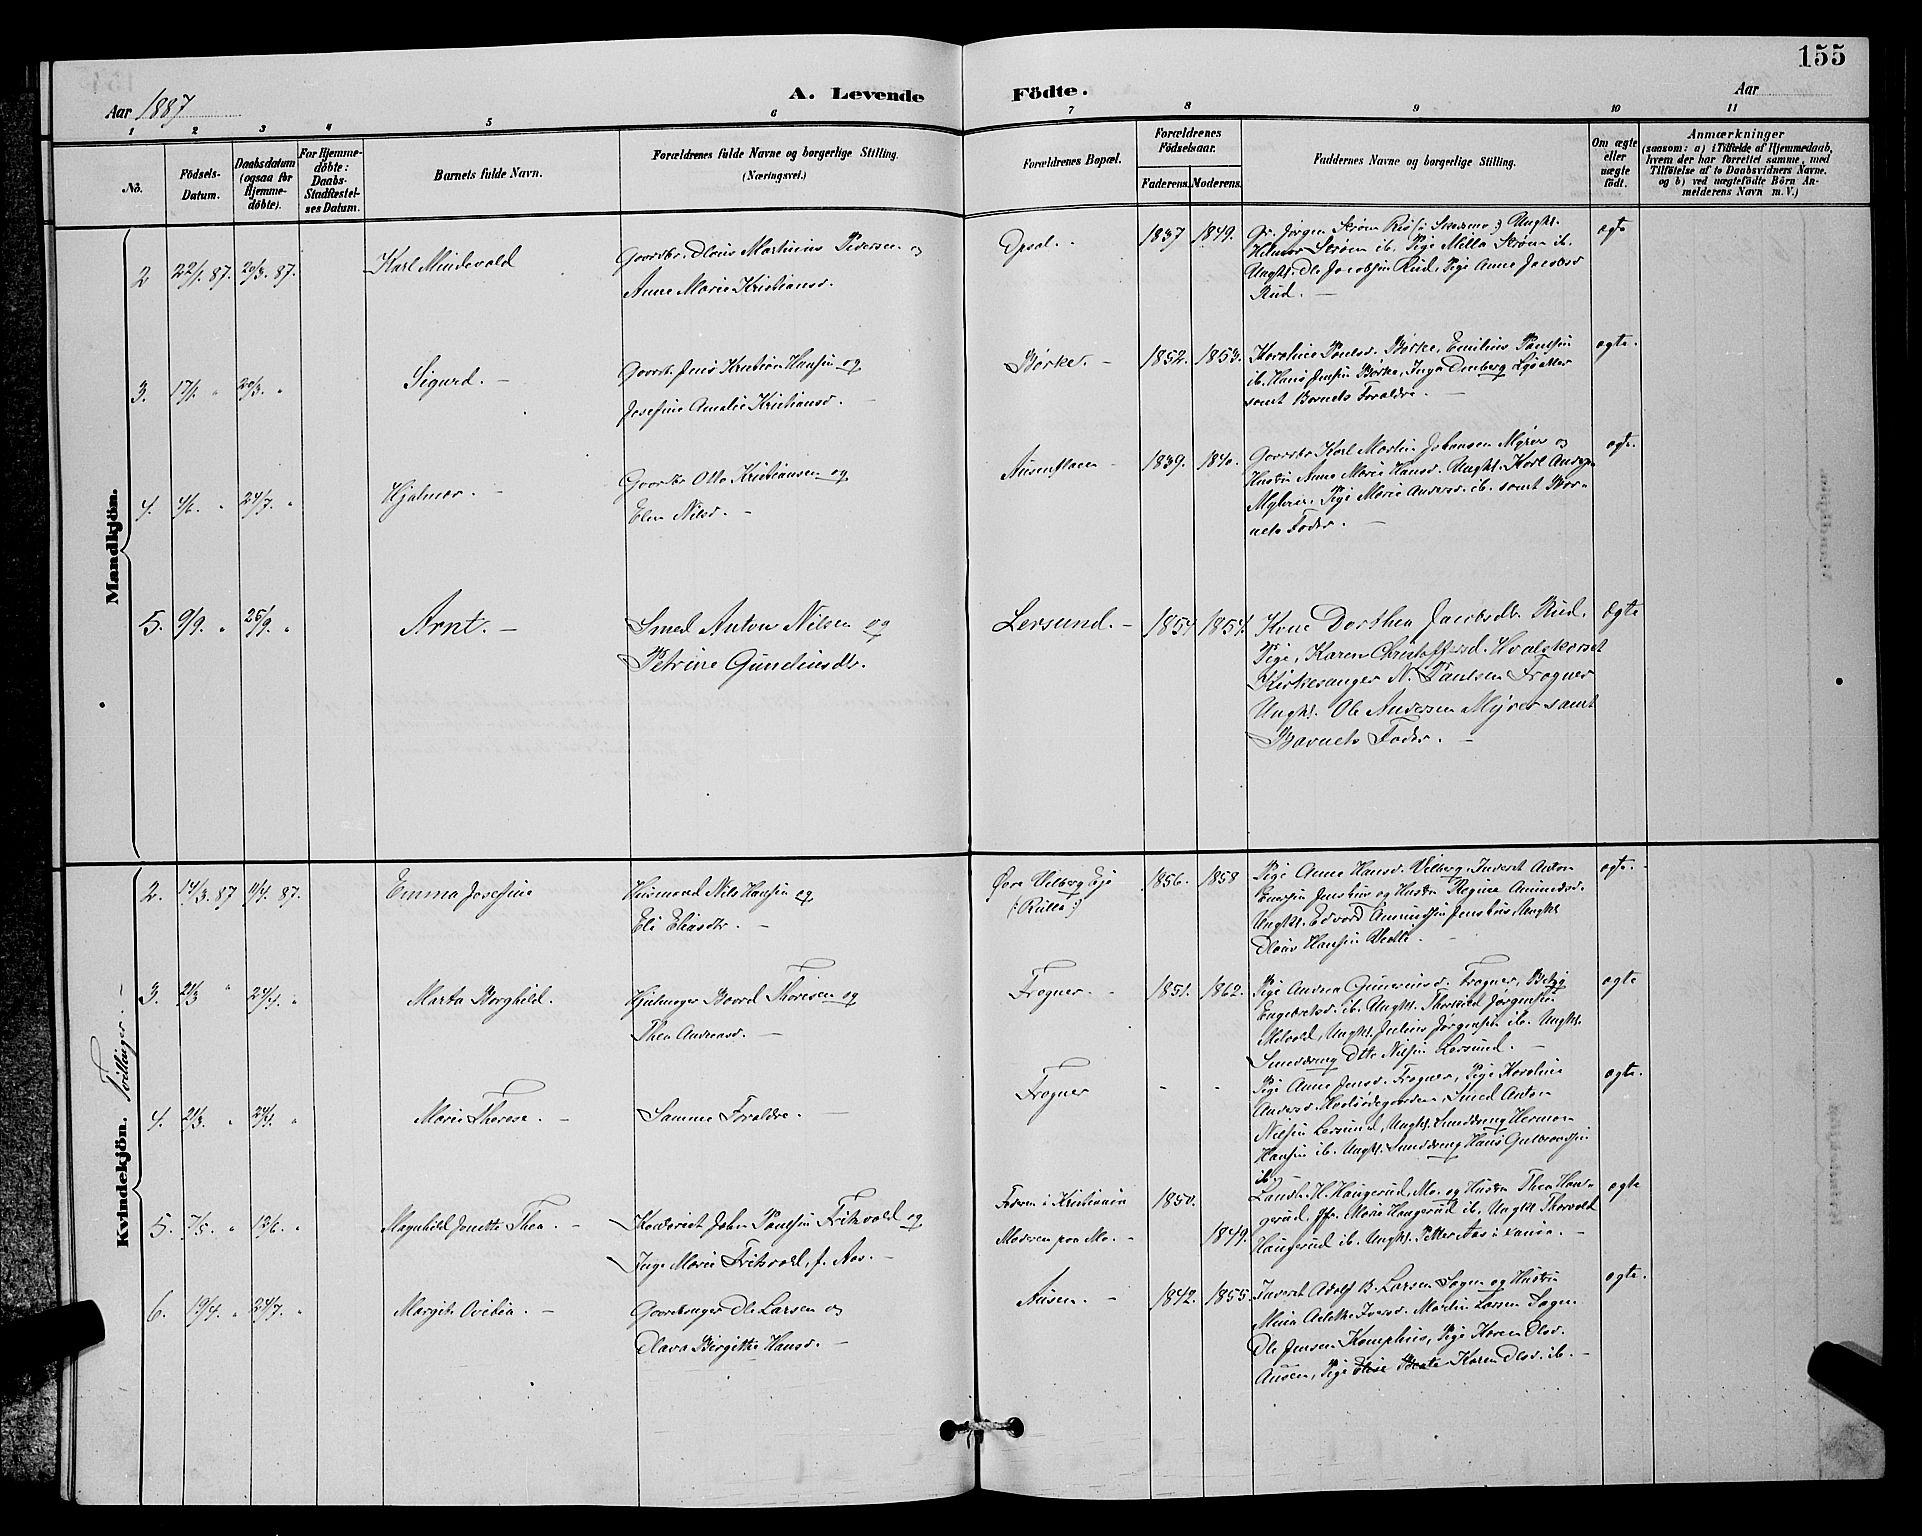 155
Aar 1887
A. Levende Födte.
Aar
1 2 3 4 5 6 7 8 9 10 11
No.
Födsels-Datum.
Daabsdatum (ogsaa for Hjemme-döbte).
For Hjemme-döbte: Daabs-Stadfæstel-ses Datum.
Barnets fulde Navn.
Forældrenes fulde Navne og borgerlige Stilling. (Næringsvei.)
Forældrenes Bopæl.
Forældrenes Födselsaar.
Faderens. Moderens.
Faddernes Navne og borgerlige Stilling.
Om ægte eller uægte födt.
Anmærkninger
(saasom: a) i Tilfælde af Hjemmedaab, hvem der har forrettet samme, med Tilföielse af to Daabsvidners Navne, og b) ved uægtefödte Börn An-melderens Navn m. V.)
Mandkjön.
2 22/1 87. 20/3. 87. Karl Mindevald
Gaardbr. Olaus Martinius Pedersen og
Anne Marie Kristiansd.
Opsal. 1837 1849.
Hilmar Strøm ib. Pige Milla Strøm ib.
Ungk. Ole Jacobsen Rud, Pige Anne Jacobsd
Rud. —
ægte
3. 17/1. " 20/3. " Sigurd. —
Gaardbr. Jens Kristian Hansen og
Josefine Amalie Kristiansd. —
Børke. — 1852. 1853.
Karoline Paulsd. Børke, Emilius Paulsen
ib. Hans Jensen Børke, Inga Denberg
samt Barnets Forældre. —
ægte.
4. 4/6. " 24/7. " Hjalmar. —
Gaardbr Otto Kristiansen og
Elen Nilsd. —
1839. 1840.
Gaardbr Karl Martin Johansen Myrer og
Hustru Anne Marie Hansd. Ungk. Karl Anders
Myhrer, Pige Marie Andersd. ib. samt Bar-
nets Fader. —
ægte.
5. 9/9. " 25/9. " Arnt. —
Smed Anton Nilsen og
Petrine Gundersdtr.
Lersund. — 1854 1854.
Kone Dorthea Jacobsdtr. Rud,
Pige, Karen Christoffersd. Hvalskorset
Kirkesanger N. Paulsen Frogner
Ungk. Ole Andersen Myrer samt
Barnets Fader. —
Ægte
Kvindekjön.
Tvillinger. —
2. 14/3. 87 87. Emma Josefine
Husmand Nils Hansen og
Eli Eliasdtr. —
Øvre Vilberg Eje
1856. 1858
Pige Anne Hansd. Vilberg, Inderst Anton
Jensbus og Hustru Regine Amundsd.
Ungk. Edvard Amundsen Jensbus, Ungk
Olaus Hansen —
ægte.
3. 21/3 " 24/4. " Marta Borghild.
Baard Thoresen og
Thea Andreasd. —
Frogner. — 1851. 1862.
Pige Andrea Guneriusd. Frogner,
Engebretsd. ib. Ungk. Jørgensen
Ungk. Julius Jørgensen ib. Ungk.
Smeddreng Otto Nilsen Lersund. —
ægte
4. 21/3. " 24/4. " Marie Therese. —
Samme Forældre. —
Frogner - -
Pige Anne Jensd. Frogner, Pige Karoline
Andersd. Smed Anton
Nilsen Lersund, Ungk. Smeddreng Herman
Hansen ib. Ungk. Smeddreng Hans Gulbrandsen
ib.
ægte.
5. 7/5. " 19/6. " Magnhild Jonette Thea. —
John Paulsen Fritzvold og
Inga Marie Fritzvold, f. Aas. —
Faderen i Kristiania 1850.
Moderen paa Mo. — 1849.
H. Haugerud, Mo. og Hustru Thea Hau-
gerud, Marie Haugerud ib. Ungk. Thorvald
Haugerud ib. Ungk. Petter Aas i Xania. —
ægte
6. 19/4. " 24/7. " Margit Ovidia. —
Gaardbruger Ole Larsen og
Olava Birgitte Hansd. —
Ausen. — 1842. 1855.
Inderst Adolf B. Larsen Sogn og Hustru
Mina Adette Iversd. Martin Larsen Sogn
Ole Jensen Pige Karen Olsd.
Ausen, Pige Karen Olsd. ib. —
ægte.